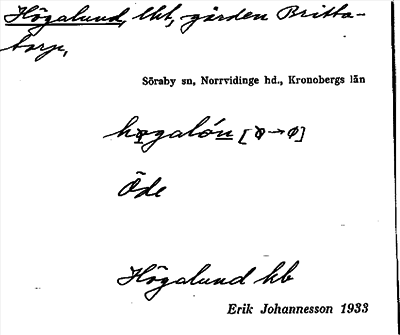 Högalund, lht, gården Britta-
torp,
Söraby sn, Norrvidinge hd., Kronobergs län
Öde
Högalund kb
Erik Johannesson 1933